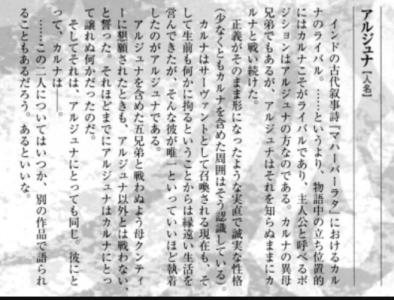 アルジュナ【人名】
インドの古代叙事詩『マハーバーラタ』におけるカル
ナのライバル。……というより、物語中の立ち位置的
にはカルナこそがライバルであり、主人公と呼べるポ
ジションはアルジュナの方なのである。カルナの異母
兄弟でもあるが、アルジュナはそれを知らぬままにカ
ルナと戦い続けた。
正義がそのまま形になったような実直で誠実な性格
(少なくともカルナを含めた周囲はそう認識している)
カルナはサーヴァントとして召喚される現在も、そ
して生前も何かに拘るということからは縁遠い生活を
営んできたが、そんな彼が唯一といっていいほど執着
したのがアルジュナである。
アルジュナを含めた五兄弟と戦わぬよう母クンティ
ーに懇願されたときも、アルジュナ以外とは戦わない、
と誓った。それほどまでにアルジュナはカルナにとっ
て譲れぬ何かだったのだ。
そしてそれは、アルジュナにとっても同じ。彼にと
って、カルナは――。
……この二人についてはいつか、別の作品で語られ
ることもあるだろう。あるといいな。